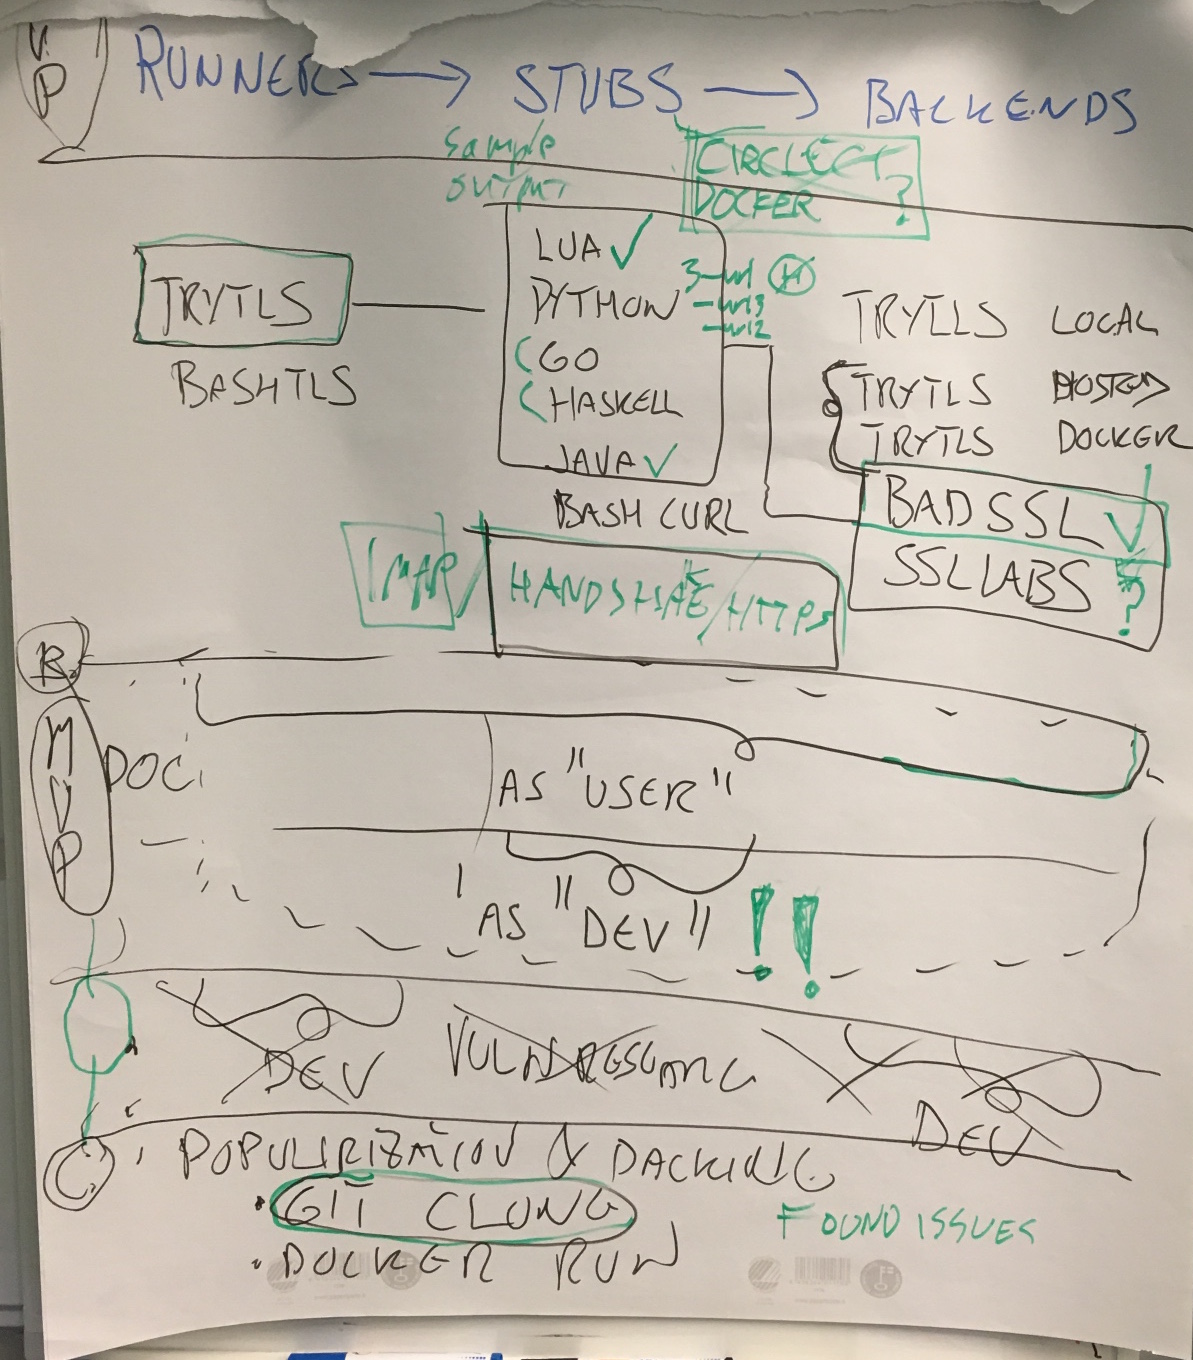 V.
P
RUNNERS → STUBS → BACKENDS
Sample
output
CIRCLECI
DOCKER ?
TRYTLS
BASHTLS
LUA ✓
PYTHON
3-url H
-url3
-url2
(GO
(HASKELL
JAVA ✓
BASH CURL
TRYLLS LOCAL
TRYTLS HOSTED
TRYTLS DOCKER
BADSSL ✓
SSLLABS ?
IMAP / HANDSHAKE/HTTPS
B.
MVP
DOC.
AS "USER"
AS "DEV" !!
DEV
DEV
C.
POPULIRIZATION & PACKING
• GIT CLONE
• DOCKER RUN
FOUND ISSUES